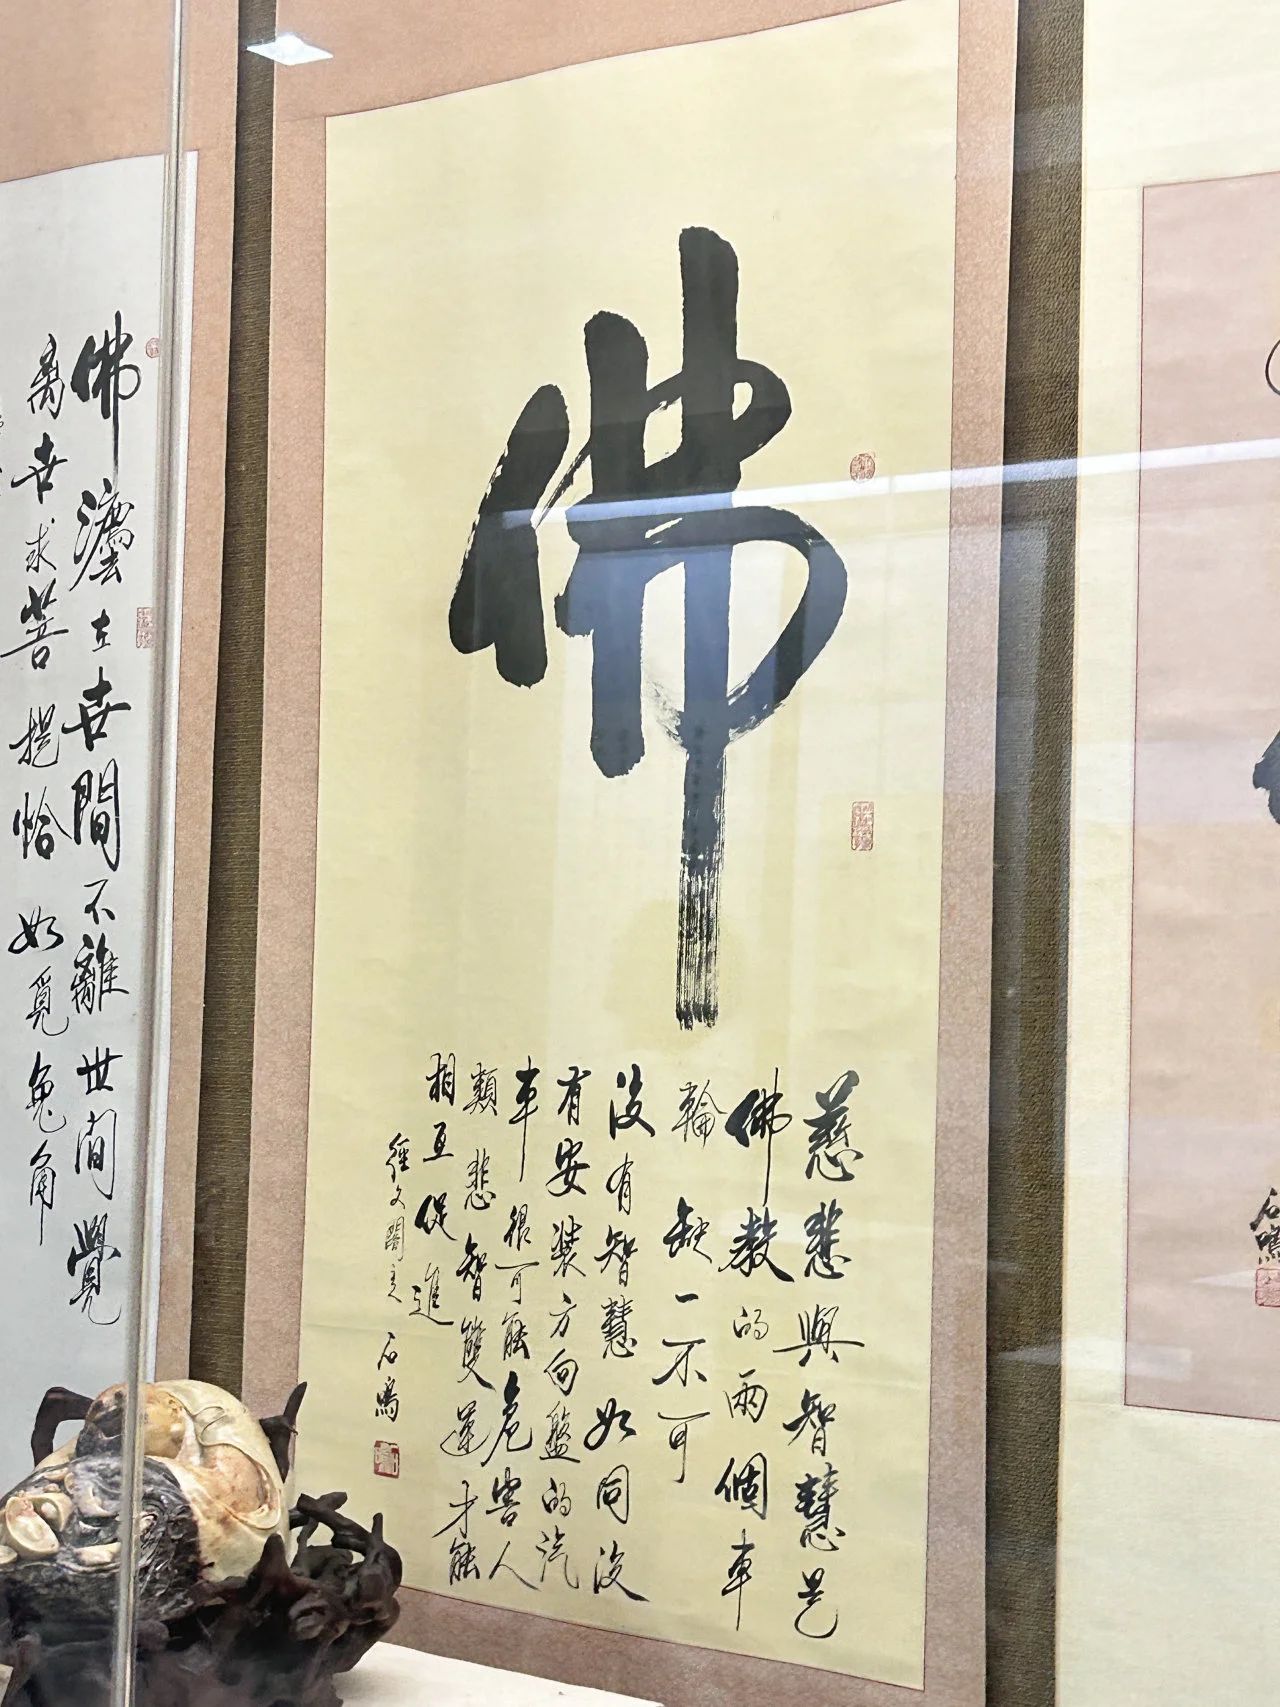 佛
慈悲與智慧是
佛教的兩個車
輪缺一不可
沒有智慧如同沒
有安裝方向盤的汽
車很可能危害人
類悲智雙運才能
相互促進
文閣主石鳴
佛灋在世間不離世间覺
离世求菩提恰如覓兔角
石鳴